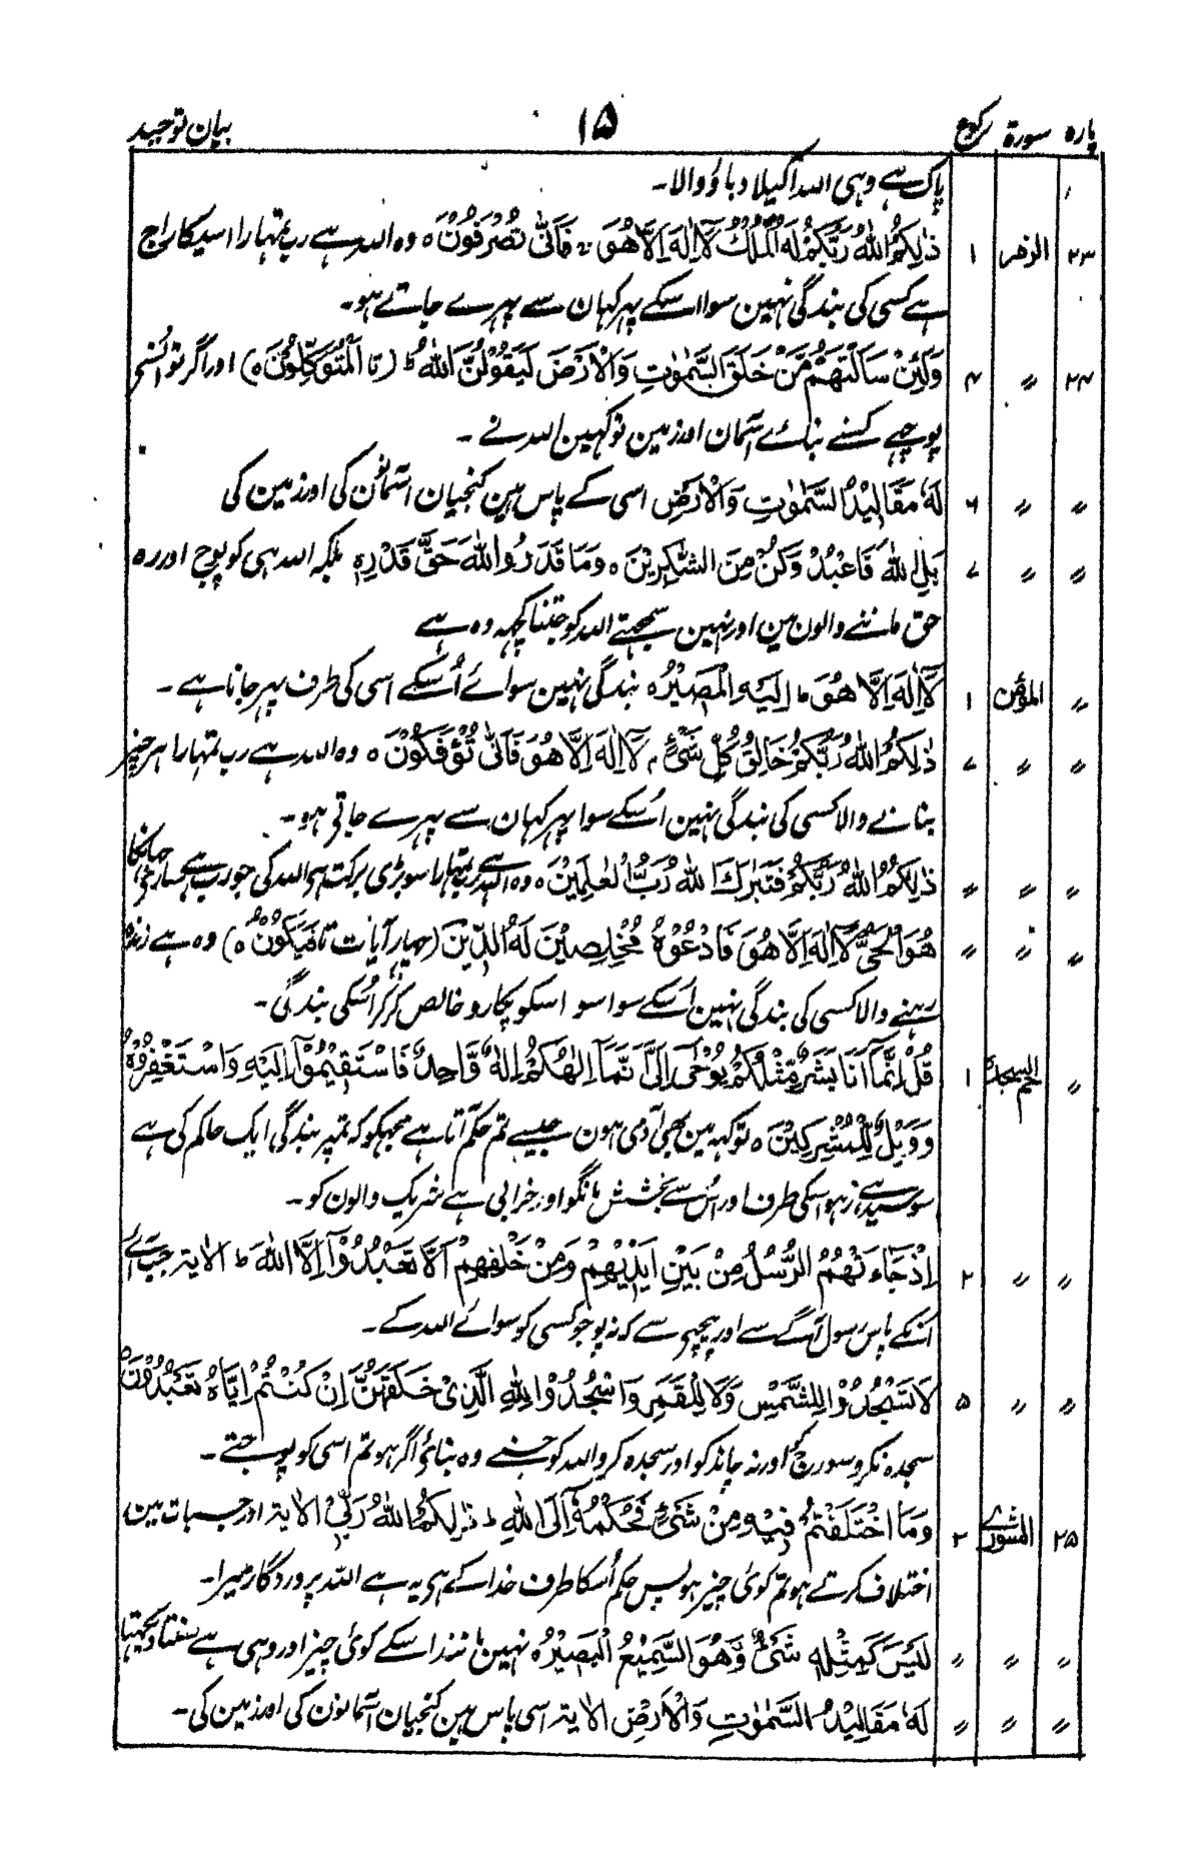 پارہ سورۃ رکوع ۱۵ بیان توحید
پاک ہے وہی اللہ اکیلا دباؤ والا۔
۲۳ الزمر ۱ ذٰلِكُمُ اللّٰهُ رَبُّكُمْ لَهُ الْمُلْكُ لَآ اِلٰهَ اِلَّا هُوَ ۚ فَاَنّٰى تُصْرَفُوْنَ ٥ وہ اللہ ہے رب تمہارا اسیکا راج
ہے کسی کی بندگی نہین سوا اسکے پہر کہان سے پہرے جاتے ہو۔
۲۴ 〃 ۴ وَلَئِنْ سَاَلْتَهُمْ مَّنْ خَلَقَ السَّمٰوٰتِ وَالْاَرْضَ لَيَقُوْلُنَّ اللّٰهُ ط (تا الْمُتَوَكِّلُوْنَ ٥) اور اگر تو اُنسے
پوچہے کسنے بنائے آسمان اور زمین تو کہین اللہ نے ۔
〃 〃 ۶ لَهٗ مَقَالِيْدُ السَّمٰوٰتِ وَالْاَرْضِ اسی کے پاس ہین کنجیان آسمانون کی اور زمین کی
〃 〃 ۷ بَلِ اللّٰهَ فَاعْبُدْ وَكُنْ مِنَ الشّٰكِرِيْنَ ٥ وَمَا قَدَرُوا اللّٰهَ حَقَّ قَدْرِهٖ بلکہ اللہ ہی کو پوج اور رہ
حق ماننے والون مین اور نہین سمجہتے اللہ کو جتنا کچہہ وہ ہے
〃 المؤمن ۱ لَآ اِلٰهَ اِلَّا هُوَ ط اِلَيْهِ الْمَصِيْرُ ٥ بندگی نہین سوائے اُسکے اسی کی طرف پہر جانا ہے ۔
〃 〃 ۷ ذٰلِكُمُ اللّٰهُ رَبُّكُمْ خَالِقُ كُلِّ شَيْءٍ ۘ لَآ اِلٰهَ اِلَّا هُوَ فَاَنّٰى تُؤْفَكُوْنَ ٥ وہ اللہ ہے رب تمہارا ہر چیز
بنانے والا کسی کی بندگی نہین اُسکے سوا پہر کہان سے پہرے جاتی ہو۔
〃 〃 〃 ذٰلِكُمُ اللّٰهُ رَبُّكُمْ فَتَبٰرَكَ اللّٰهُ رَبُّ الْعٰلَمِيْنَ ٥ وہ اللہ ہے رب تمہارا سو بڑی برکت ہی اللہ کی جو رب ہے سارے جہانکا
〃 〃 〃 هُوَ الْحَيُّ لَآ اِلٰهَ اِلَّا هُوَ فَادْعُوْهُ مُخْلِصِيْنَ لَهُ الدِّيْنَ (چہار آیات تا فَيَكُوْنُ ٥) وہ ہے زندہ
رہنے والا کسی کی بندگی نہین اُسکے سوا سو اسکو پکارو خالص کر کر اُسکی بندگی۔
〃 حٰم السجدۃ ۱ قُلْ اِنَّمَآ اَنَا بَشَرٌ مِّثْلُكُمْ يُوْحٰى اِلَيَّ اَنَّمَآ اِلٰهُكُمْ اِلٰهٌ وَّاحِدٌ فَاسْتَقِيْمُوْٓا اِلَيْهِ وَاسْتَغْفِرُوْهُ
وَوَيْلٌ لِّلْمُشْرِكِيْنَ ٥ تو کہہ مین بھی آدمی ہون جیسے تم حکم آتا ہے مجہکو کہ تمپر بندگی ایک حاکم کی ہے
سو سیدہے رہو اسکی طرف اور اُس سے بخشش مانگو اور خرابی ہے شریک والون کو۔
〃 〃 ۲ اِذْ جَآءَتْهُمُ الرُّسُلُ مِنْ بَيْنِ اَيْدِيْهِمْ وَمِنْ خَلْفِهِمْ اَلَّا تَعْبُدُوْٓا اِلَّا اللّٰهَ ط الاٰیۃ جب آئے
اُنکے پاس رسول آگے سے اور پیچہے سے کہ نہ پوجو کسی کو سوائے اللہ کے۔
〃 〃 ۵ لَا تَسْجُدُوْا لِلشَّمْسِ وَلَا لِلْقَمَرِ وَاسْجُدُوْا لِلّٰهِ الَّذِيْ خَلَقَهُنَّ اِنْ كُنْتُمْ اِيَّاهُ تَعْبُدُوْنَ
سجدہ نکرو سورج کو اور نہ چاند کو اور سجدہ کرو اللہ کو جسنے وہ بنائی اگر ہو تم اسی کو پوجتے ۔
۲۵ الشورے ۲ وَمَا اخْتَلَفْتُمْ فِيْهِ مِنْ شَيْءٍ فَحُكْمُهٗٓ اِلَى اللّٰهِ ط ذٰلِكُمُ اللّٰهُ رَبِّيْ الاٰیۃ اور جس بات مین
اختلاف کرتے ہو تم کوئی چیز ہو پس حکم اُسکا طرف خدا کے ہی یہ ہے اللہ پروردگار میرا۔
〃 〃 〃 لَيْسَ كَمِثْلِهٖ شَيْءٌ وَّهُوَ السَّمِيْعُ الْبَصِيْرُ ٥ نہین مانند اسکے کوئی چیز اور وہی ہے سنتا دیکہتا
〃 〃 〃 لَهٗ مَقَالِيْدُ السَّمٰوٰتِ وَالْاَرْضِ الاٰیۃ اسی پاس ہین کنجیان آسمانون کی اور زمین کی۔